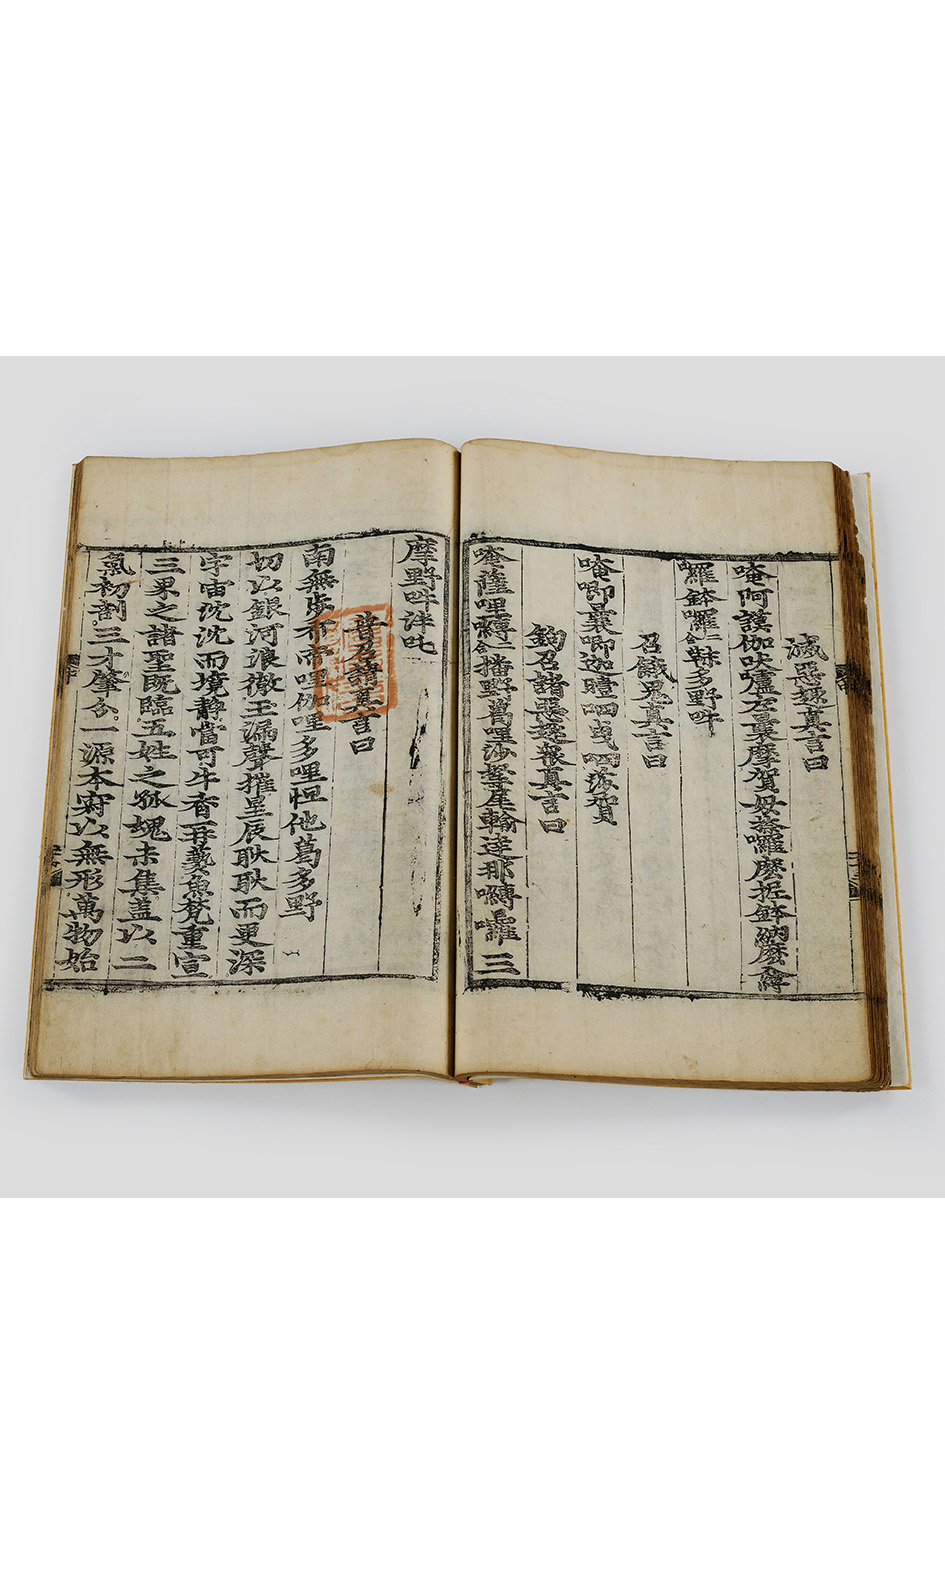 滅惡趣真言曰
唵阿謨伽吠嚧左曩摩賀母捺囉麽抳鉢納麽入嚩
囉鉢囉二合韈多野吽
召餓鬼真言曰
唵唧曩唧迦曀呬曵呬莎賀
鉤召諸惡趣衆真言曰
唵薩哩嚩二合播野葛哩沙拏尾輸達那嚩囉三
摩野吽泮吒
普召請真言曰
南無步布帝哩伽哩多哩怛他葛多野
切以銀河浪徹玉漏聲摧星辰耿耿而更深
宇宙沈沈而境静當可牛香再爇魚梵重宣
三界之諸聖既臨五姓之孤魂未集盖以二
氣初割三才肇分一源本寂以無形萬物始